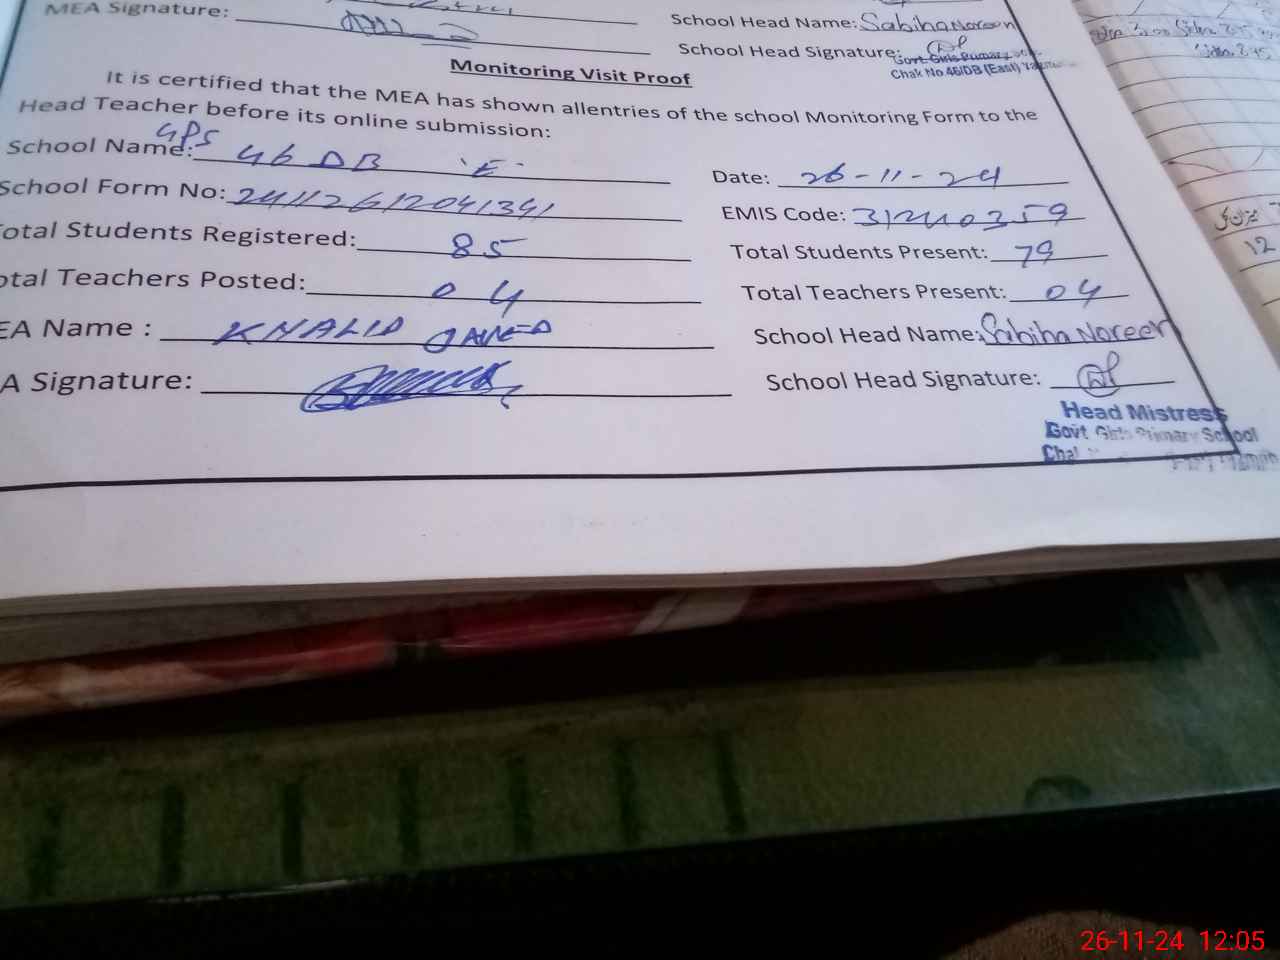 MEA Signature:
School Head Name: Sabiha Noreen
School Head Signature:
Govt Girls Primary
Chak No.46/DB (East)
Monitoring Visit Proof
It is certified that the MEA has shown allentries of the school Monitoring Form to the
Head Teacher before its online submission:
GPS
School Name: 46 DB 'E'
Date: 26-11-24
School Form No: 24112612041341
EMIS Code: 31240359
otal Students Registered: 85
Total Students Present: 79
otal Teachers Posted: 04
Total Teachers Present: 04
EA Name : KHALID JAVED
School Head Name: Sabiha Noreen
A Signature:
School Head Signature:
Head Mistress
Govt Girls Primary School
12
26-11-24 12:05